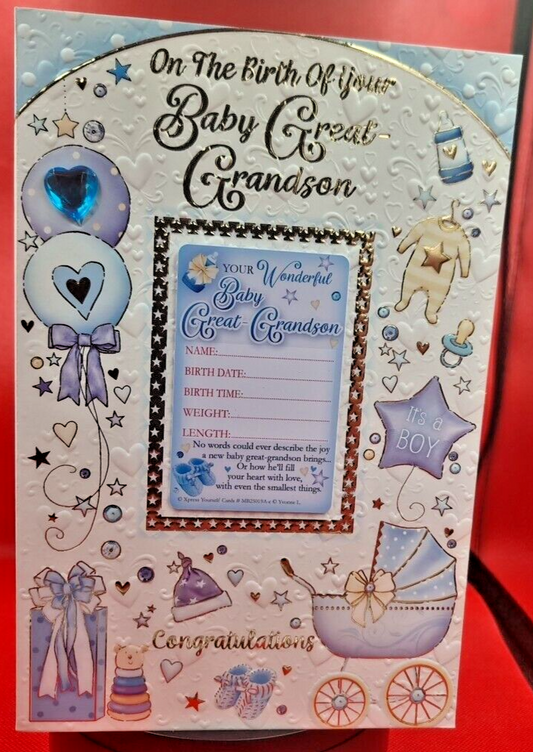 On The Birth Of Your
Baby Great-
Grandson
YOUR Wonderful
Baby
Great-Grandson
NAME:
BIRTH DATE:
BIRTH TIME:
WEIGHT:
LENGTH:
No words could ever describe the joy
a new baby great-grandson brings...
Or how he'll fill
your heart with love,
with even the smallest things.
© Xpress Yourself Cards © Yvonne L.
It's a
BOY
Congratulations